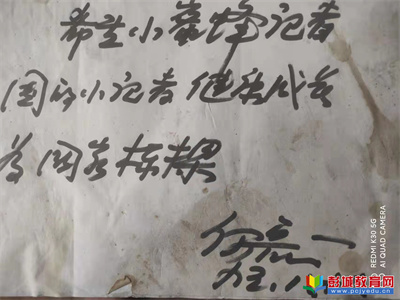 希望小蜜蜂记者
团的小记者继续成长
为国家栋梁
彭城教育网
www.pcjyedu.cn
REDMI K30 5G
AI QUAD CAMERA